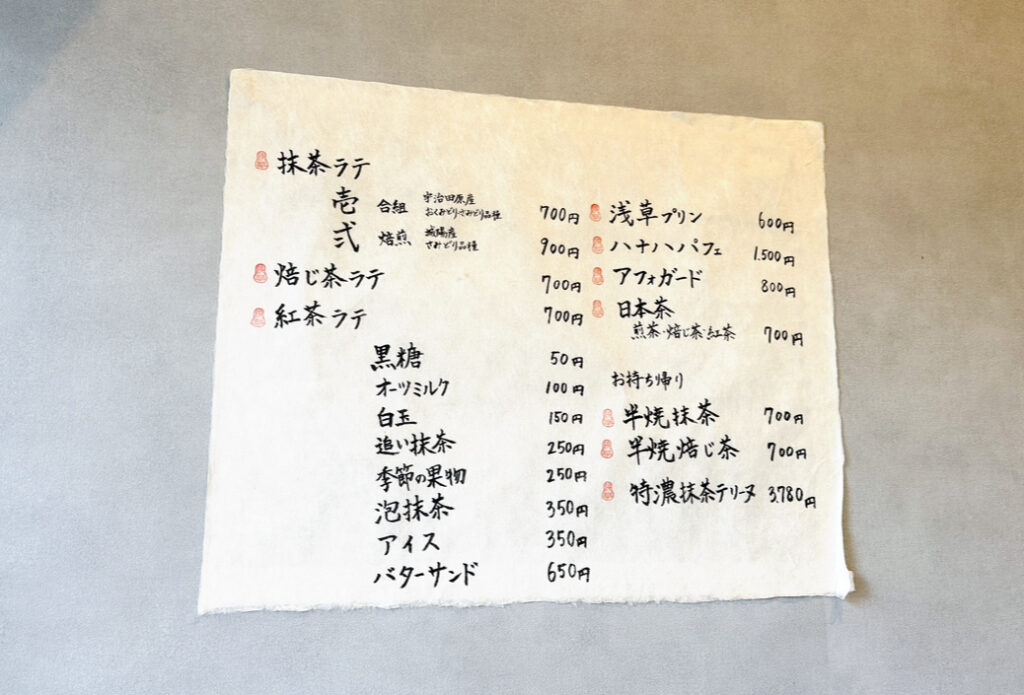 抹茶ラテ
壱 合組 宇治田原産 おくみどり・さみどり品種 700円
弐 焙煎 城陽産 さみどり品種 900円
焙じ茶ラテ 700円
紅茶ラテ 700円
黒糖 50円
オーツミルク 100円
白玉 150円
追い抹茶 250円
季節の果物 250円
泡抹茶 350円
アイス 350円
バターサンド 650円
浅草プリン 600円
ハナハパフェ 1.500円
アフォガード 800円
日本茶
煎茶・焙じ茶・紅茶 700円
お持ち帰り
半焼抹茶 700円
半焼焙じ茶 700円
特濃抹茶テリーヌ 3.780円